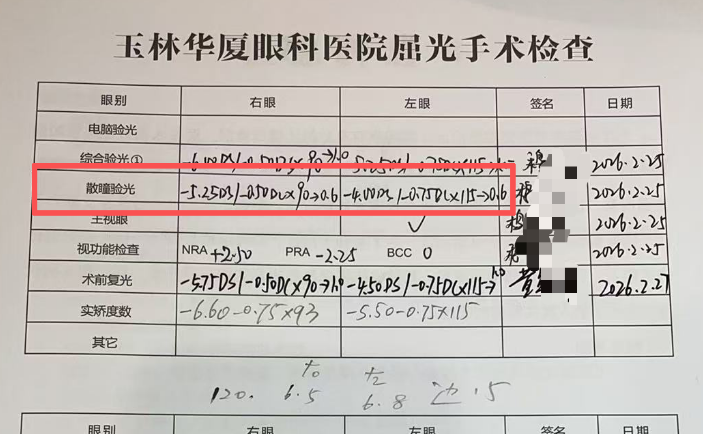 玉林华厦眼科医院屈光手术检查
眼别 右眼 左眼 签名 日期
电脑验光
综合验光① -6.00DS/-0.50DC×90→1.0 -5.25DS/-0.75DC×115→1.0 2026.2.25
散瞳验光 -5.25DS/-0.50DC×90→0.6 -4.00DS/-0.75DC×115→0.6 2026.2.25
主视眼 ✓ 2026.2.25
视功能检查 NRA +2.50 PRA -2.25 BCC 0 2026.2.25
术前复光 -5.75DS/-0.50DC×90→1.0 -4.50DS/-0.75DC×115→1.0 2026.2.27
实矫度数 -6.60-0.75×93 -5.50-0.75×115
其它
t0 t2
120. 6.5 6.8 边.5
眼别 右眼 左眼 签名 日期